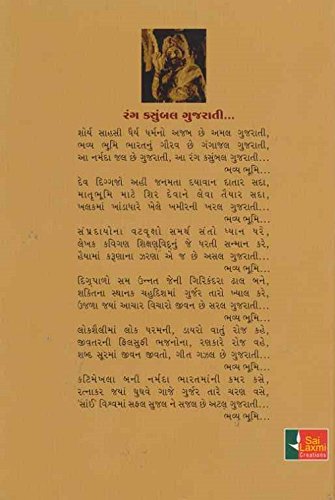 રંગ કસુંબલ ગુજરાતી...
શૌર્ય સાહસી ધૈર્ય ધર્મનો અજબ છે અમલ ગુજરાતી,
ભવ્ય ભૂમિ ભારતનું ગૌરવ છે ગંગાજલ ગુજરાતી,
આ નર્મદા જલ છે ગુજરાતી, આ રંગ કસુંબલ ગુજરાતી...
ભવ્ય ભૂમિ...
દેવ દિગ્ગજો અહીં જનમતા દયાવાન દાતાર સદા,
માતૃભૂમિ માટે શિર દેવાને લેવા તૈયાર સદા,
ખલકમાં ખાંડાધારે ખેલે ખમીરની ખરલ ગુજરાતી...
ભવ્ય ભૂમિ...
સંપ્રદાયોના વટવૃક્ષો સમર્થ સંતો ધ્યાન ધરે,
લેખક કવિગણ શિક્ષણવિદ્દનું જે ધરતી સન્માન કરે,
હૈયામાં કરૂણાના ઝરણા એ જ છે અસલ ગુજરાતી...
ભવ્ય ભૂમિ...
દિગ્પાળો સમ ઉન્નત જેની ગિરિકંદરા ઢાલ બને,
શક્તિના સ્થાનક ચહુદિશમાં ગુર્જર તારો ખ્યાલ કરે,
ઉજળા જ્યાં આચાર વિચારો જીવન છે સરલ ગુજરાતી...
ભવ્ય ભૂમિ...
લોકશૈલીમાં લોક ધરમની, ડાયરો વાતું રોજ કહે,
જીવતરની ફિલસુફી ભજનોના, રણકારે રોજ વહે,
શબ્દ સૂરમાં જીવન જીવતો, ગીત ગઝલ છે ગુજરાતી...
ભવ્ય ભૂમિ...
કટિમેખલા બની નર્મદા ભારતમાંની કમર કસે,
રત્નાકર જ્યાં ઘુઘવે ગાજે ગુર્જર તારે ચરણ વસે,
'સાંઈ' વિશ્વમાં સફલ સુજલ ને સજલ છે અટલ ગુજરાતી...
ભવ્ય ભૂમિ...
Sai
Laxmi
Creations